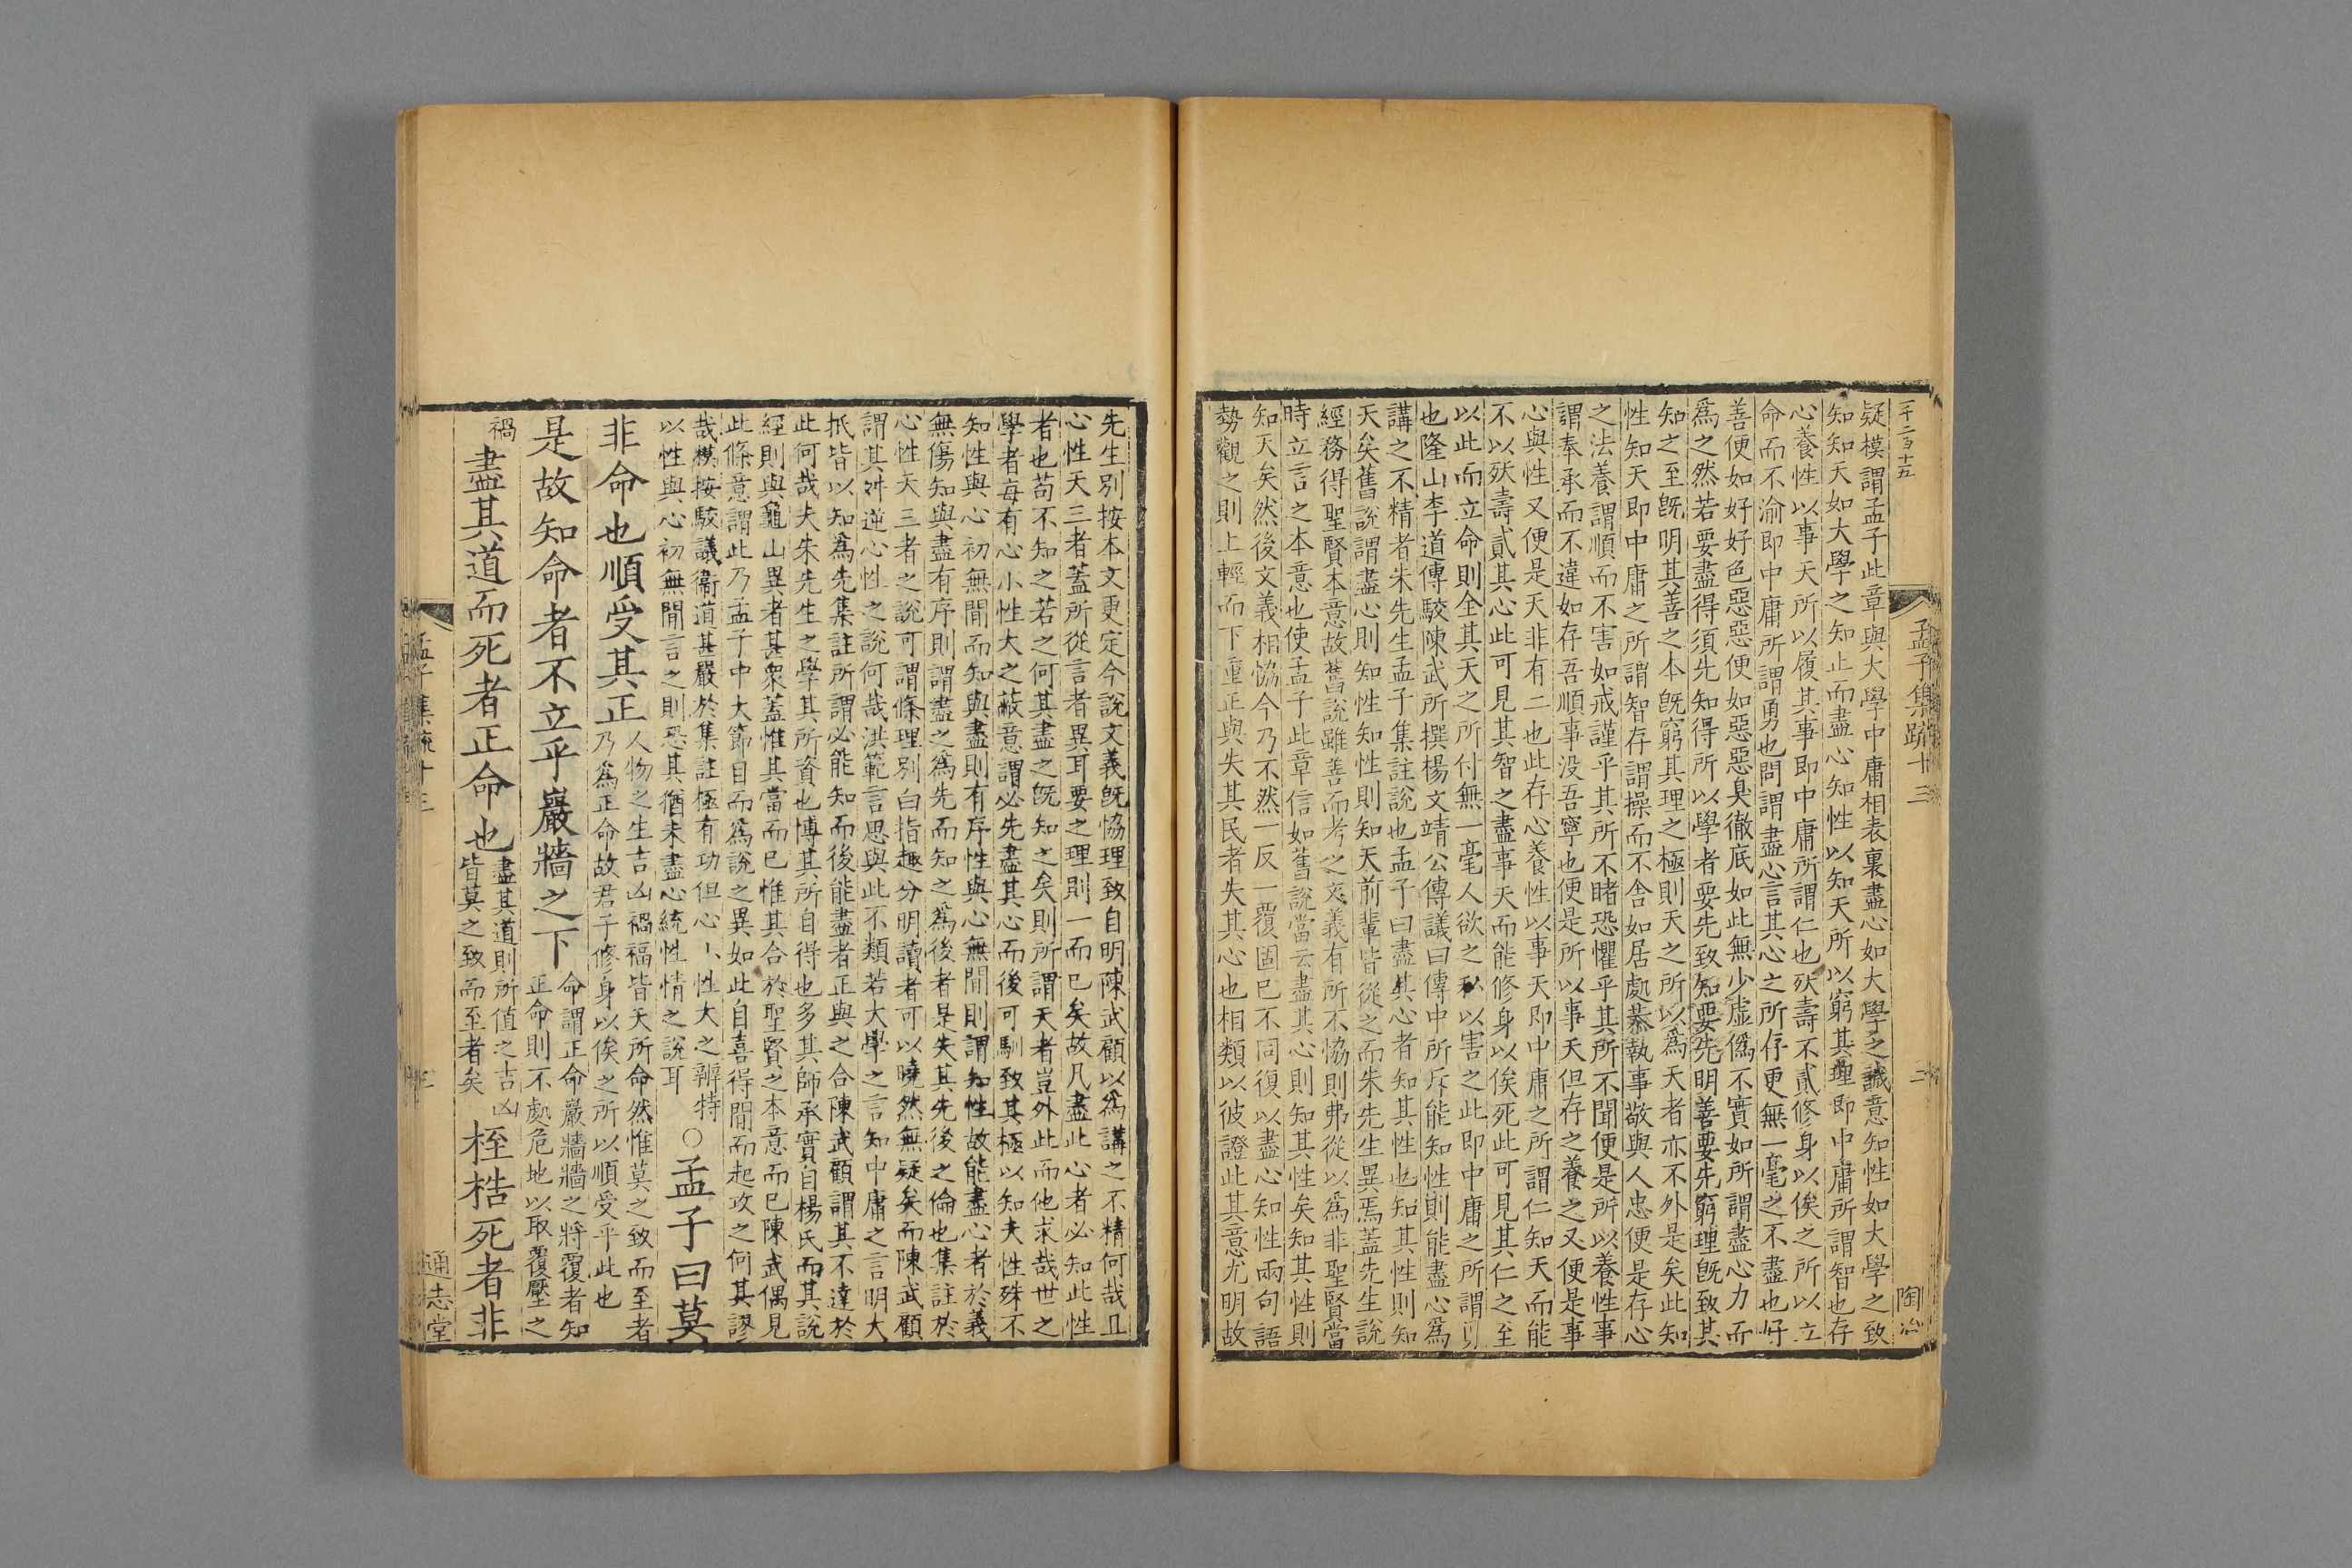 二千二百十五
孟子集疏十三
二
陶冶
疑模謂孟子此章與大學中庸相表裏盡心如大學之誠意知性如大學之致
知知天如大學之知止而盡心知性以知天所以窮其理即中庸所謂智也存
心養性以事天所以履其事即中庸所謂仁也殀壽不貳修身以俟之所以立
命而不渝即中庸所謂勇也問謂盡心言其心之所存更無一毫之不盡也好
善便如好好色惡惡便如惡惡臭徹底如此無少虛僞不實如所謂盡心力而
爲之然若要盡得須先知得所以學者要先致知要先明善要先窮理旣致其
知之至旣明其善之本旣窮其理之極則天之所以爲天者亦不外是矣此知
性知天即中庸之所謂智存謂操而不舍如居處恭執事敬與人忠便是存心
之法養謂順而不害如戒謹乎其所不睹恐懼乎其所不聞便是所以養性事
謂奉承而不違如存吾順事没吾寧也便是所以事天但存之養之又便是事
心與性又便是天非有二也此存心養性以事天即中庸之所謂仁知天而能
不以殀壽貳其心此可見其智之盡事天而能修身以俟死此可見其仁之至
以此而立命則全其天之所付無一毫人欲之私以害之此即中庸之所謂勇
也隆山李道傳駮陳武所撰楊文靖公傳議曰傳中所斥能知性則能盡心爲
講之不精者朱先生孟子集註說也孟子曰盡其心者知其性也知其性則知
天矣舊說謂盡心則知性知性則知天前輩皆從之而朱先生異焉蓋先生說
經務得聖賢本意故舊說雖善而考之文義有所不恊則弗從以爲非聖賢當
時立言之本意也使孟子此章信如舊說當云盡其心則知其性矣知其性則
知天矣然後文義相恊今乃不然一反一覆固已不同復以盡心知性兩句語
勢觀之則上輕而下重正與失其民者失其心也相類以彼證此其意尤明故
先生別按本文更定今說文義旣恊理致自明陳武顧以爲講之不精何哉且
心性天三者蓋所從言者異耳要之理則一而已矣故凡盡此心者必知此性
者也苟不知之若之何其盡之旣知之矣則所謂天者豈外此而他求哉世之
學者每有心小性大之蔽意謂必先盡其心而後可馴致其極以知夫性殊不
知性與心初無間而知與盡則有序性與心無間則謂知性故能盡心者於義
無傷知與盡有序則謂盡之爲先而知之爲後者是失其先後之倫也集註於
心性天三者之說可謂條理別白指趣分明讀者可以曉然無疑矣而陳武顧
謂其舛逆心性之說何哉洪範言思與此不類若大學之言知中庸之言明大
抵皆以知爲先集註所謂必能知而後能盡者正與之合陳武顧謂其不達於
此何哉夫朱先生之學其所資也博其所自得也多其師承實自楊氏而其說
經則與龜山異者甚衆蓋惟其當而已惟其合於聖賢之本意而已陳武偶見
此條意謂此乃孟子中大節目而爲說之異如此自喜得間而起攻之何其謬
哉模按駮議衞道甚嚴於集註極有功但心小性大之辨特
以性與心初無間言之則恐其猶未盡心統性情之說耳○孟子曰莫
非命也順受其正人物之生吉凶禍福皆天所命然惟莫之致而至者
乃爲正命故君子修身以俟之所以順受乎此也
是故知命者不立乎巖牆之下命謂正命巖牆牆之將覆者知
正命則不處危地以取覆壓之
禍盡其道而死者正命也盡其道則所值之吉凶
皆莫之致而至者矣桎梏死者非
孟子集疏十三
三
通志堂